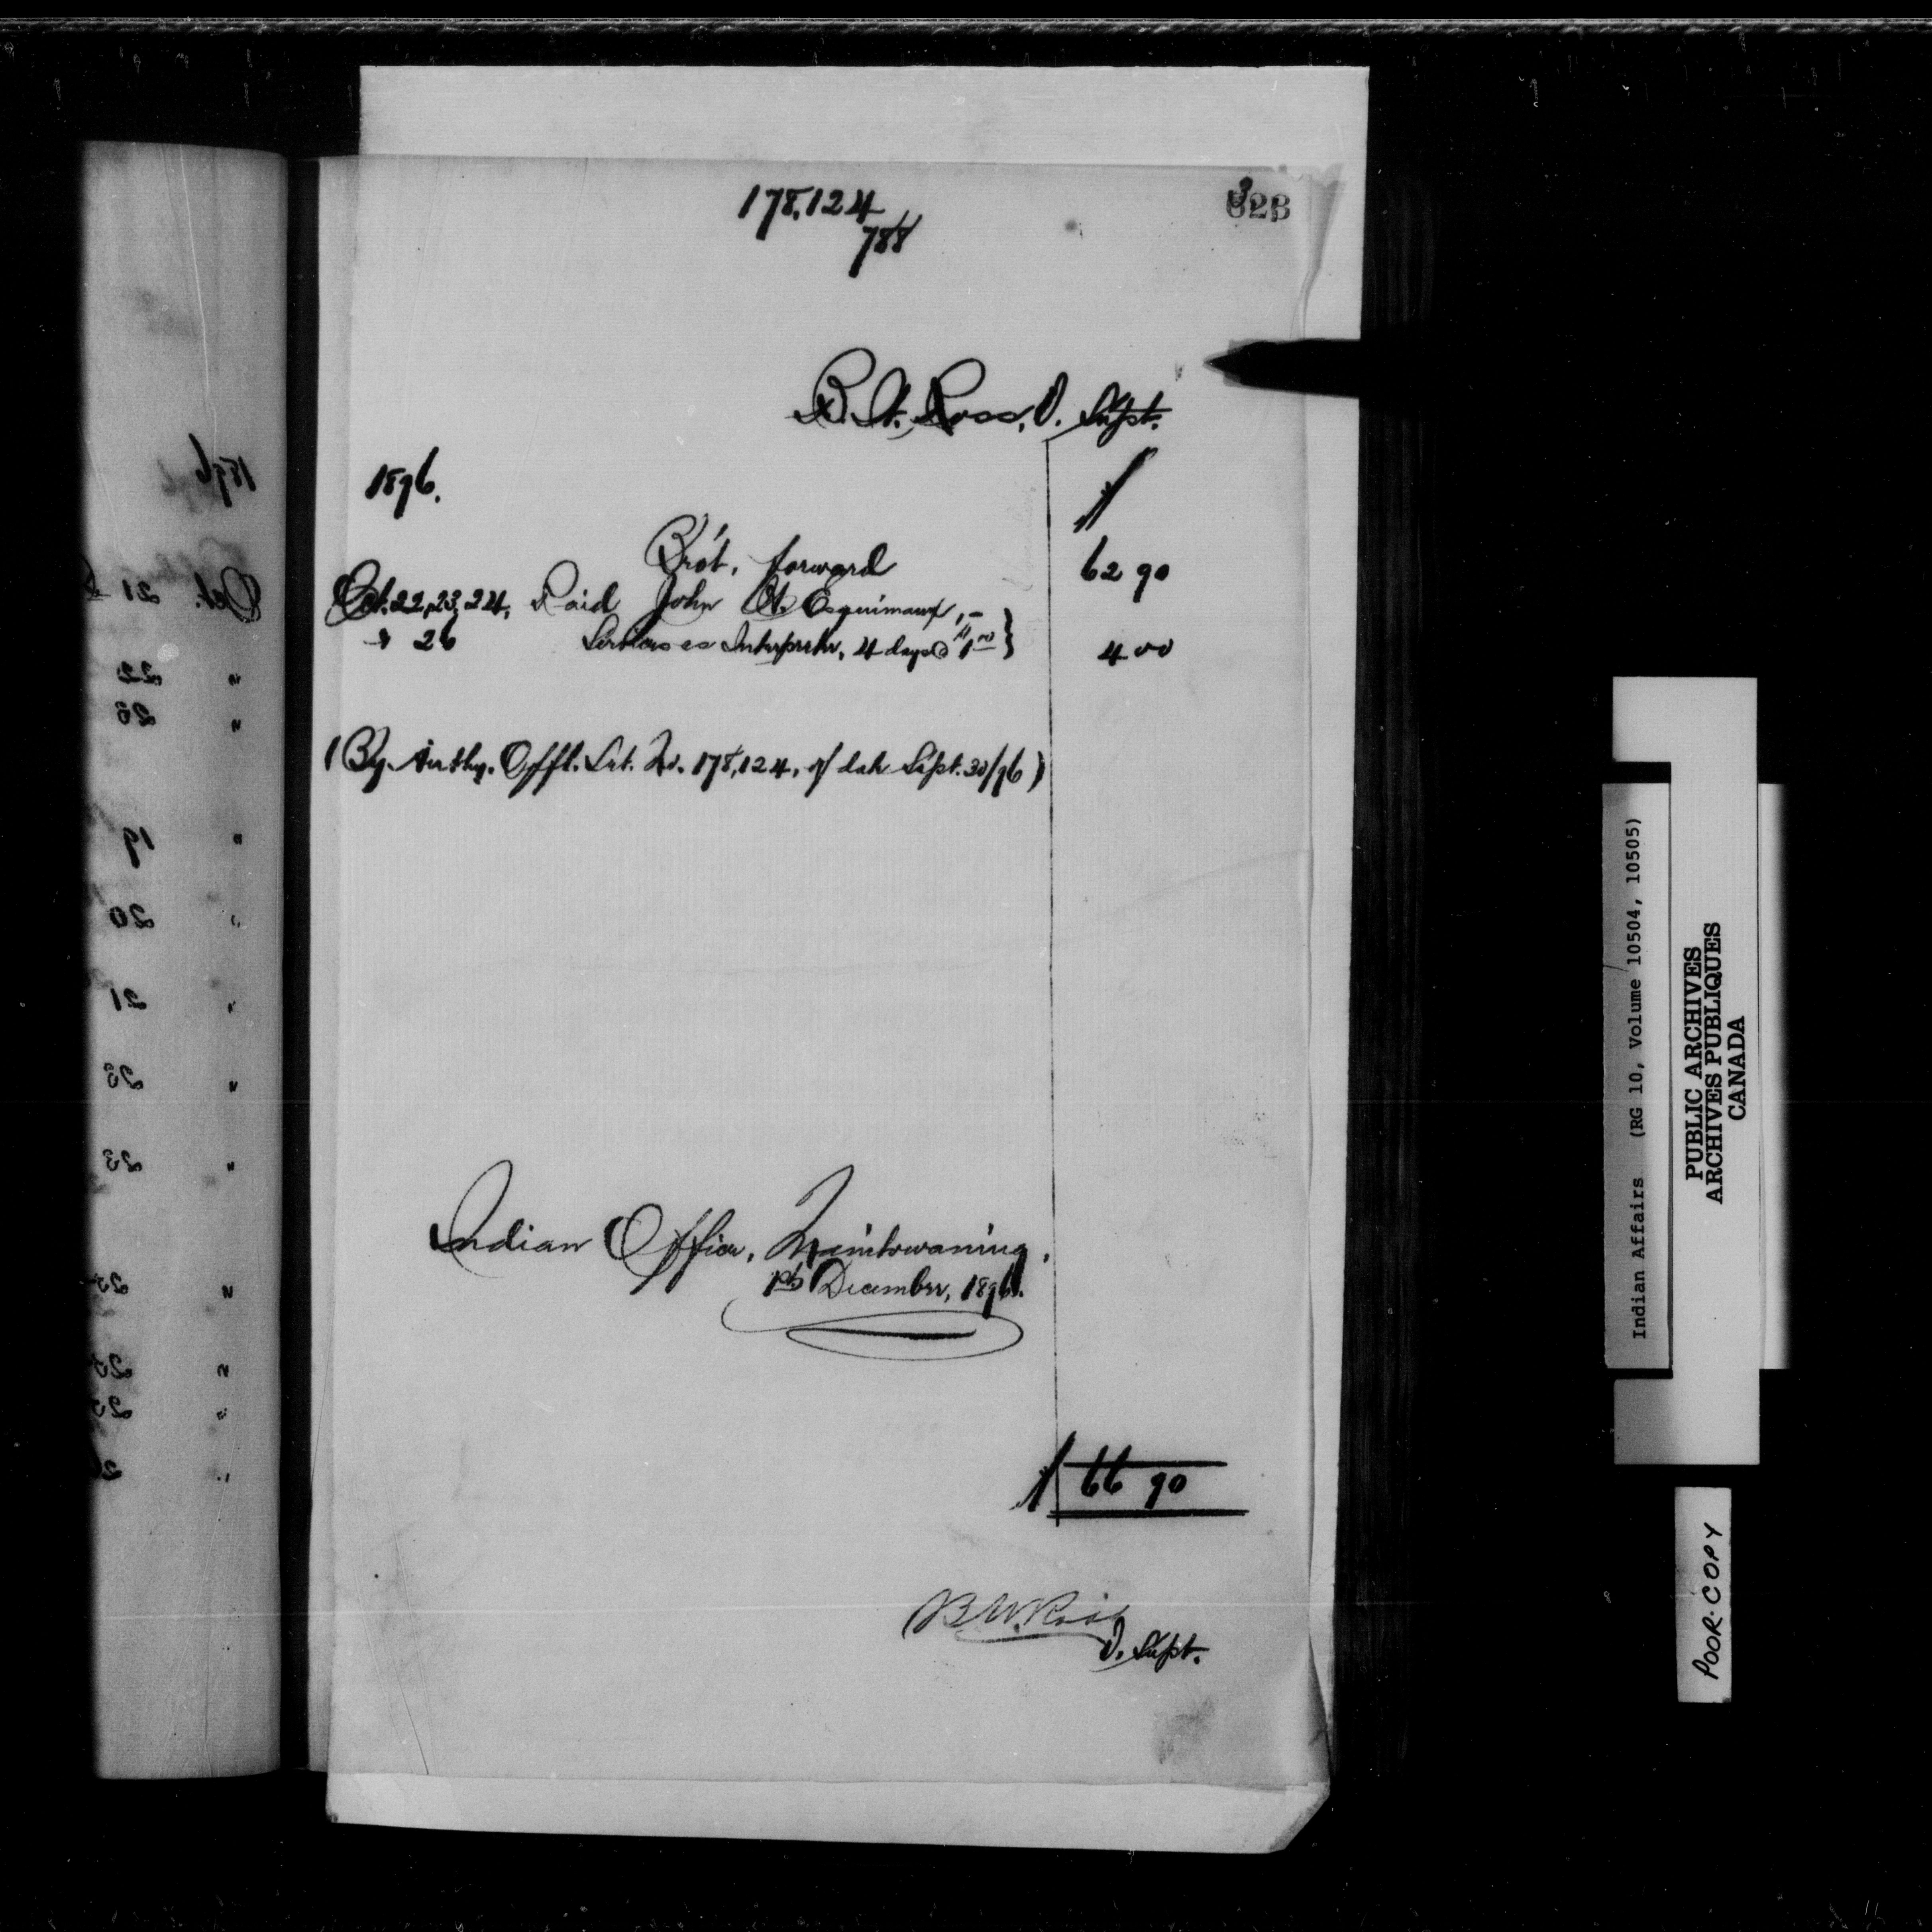 178,124
788
B. W. Ross, V. Supt.
1896.
$
Bro't. forward 62 90
Oct. 22, 23, 24, Paid John A. Esquimaux, -
" 26 Services as Interpreter, 4 days @ $1.00 } 4 00
(By Authy. Offl. Let. No. 178,124, of date Sept. 30/96)
Indian Office, Manitowaning,
1st December, 1896.
$ 66 90
B W. Ross
V. Supt.
1896
Oct. 21
" 22
" 23
" 19
" 20
" 21
" 23
" 23
Indian Affairs (RG 10, Volume 10504, 10505)
PUBLIC ARCHIVES
ARCHIVES PUBLIQUES
CANADA
POOR COPY